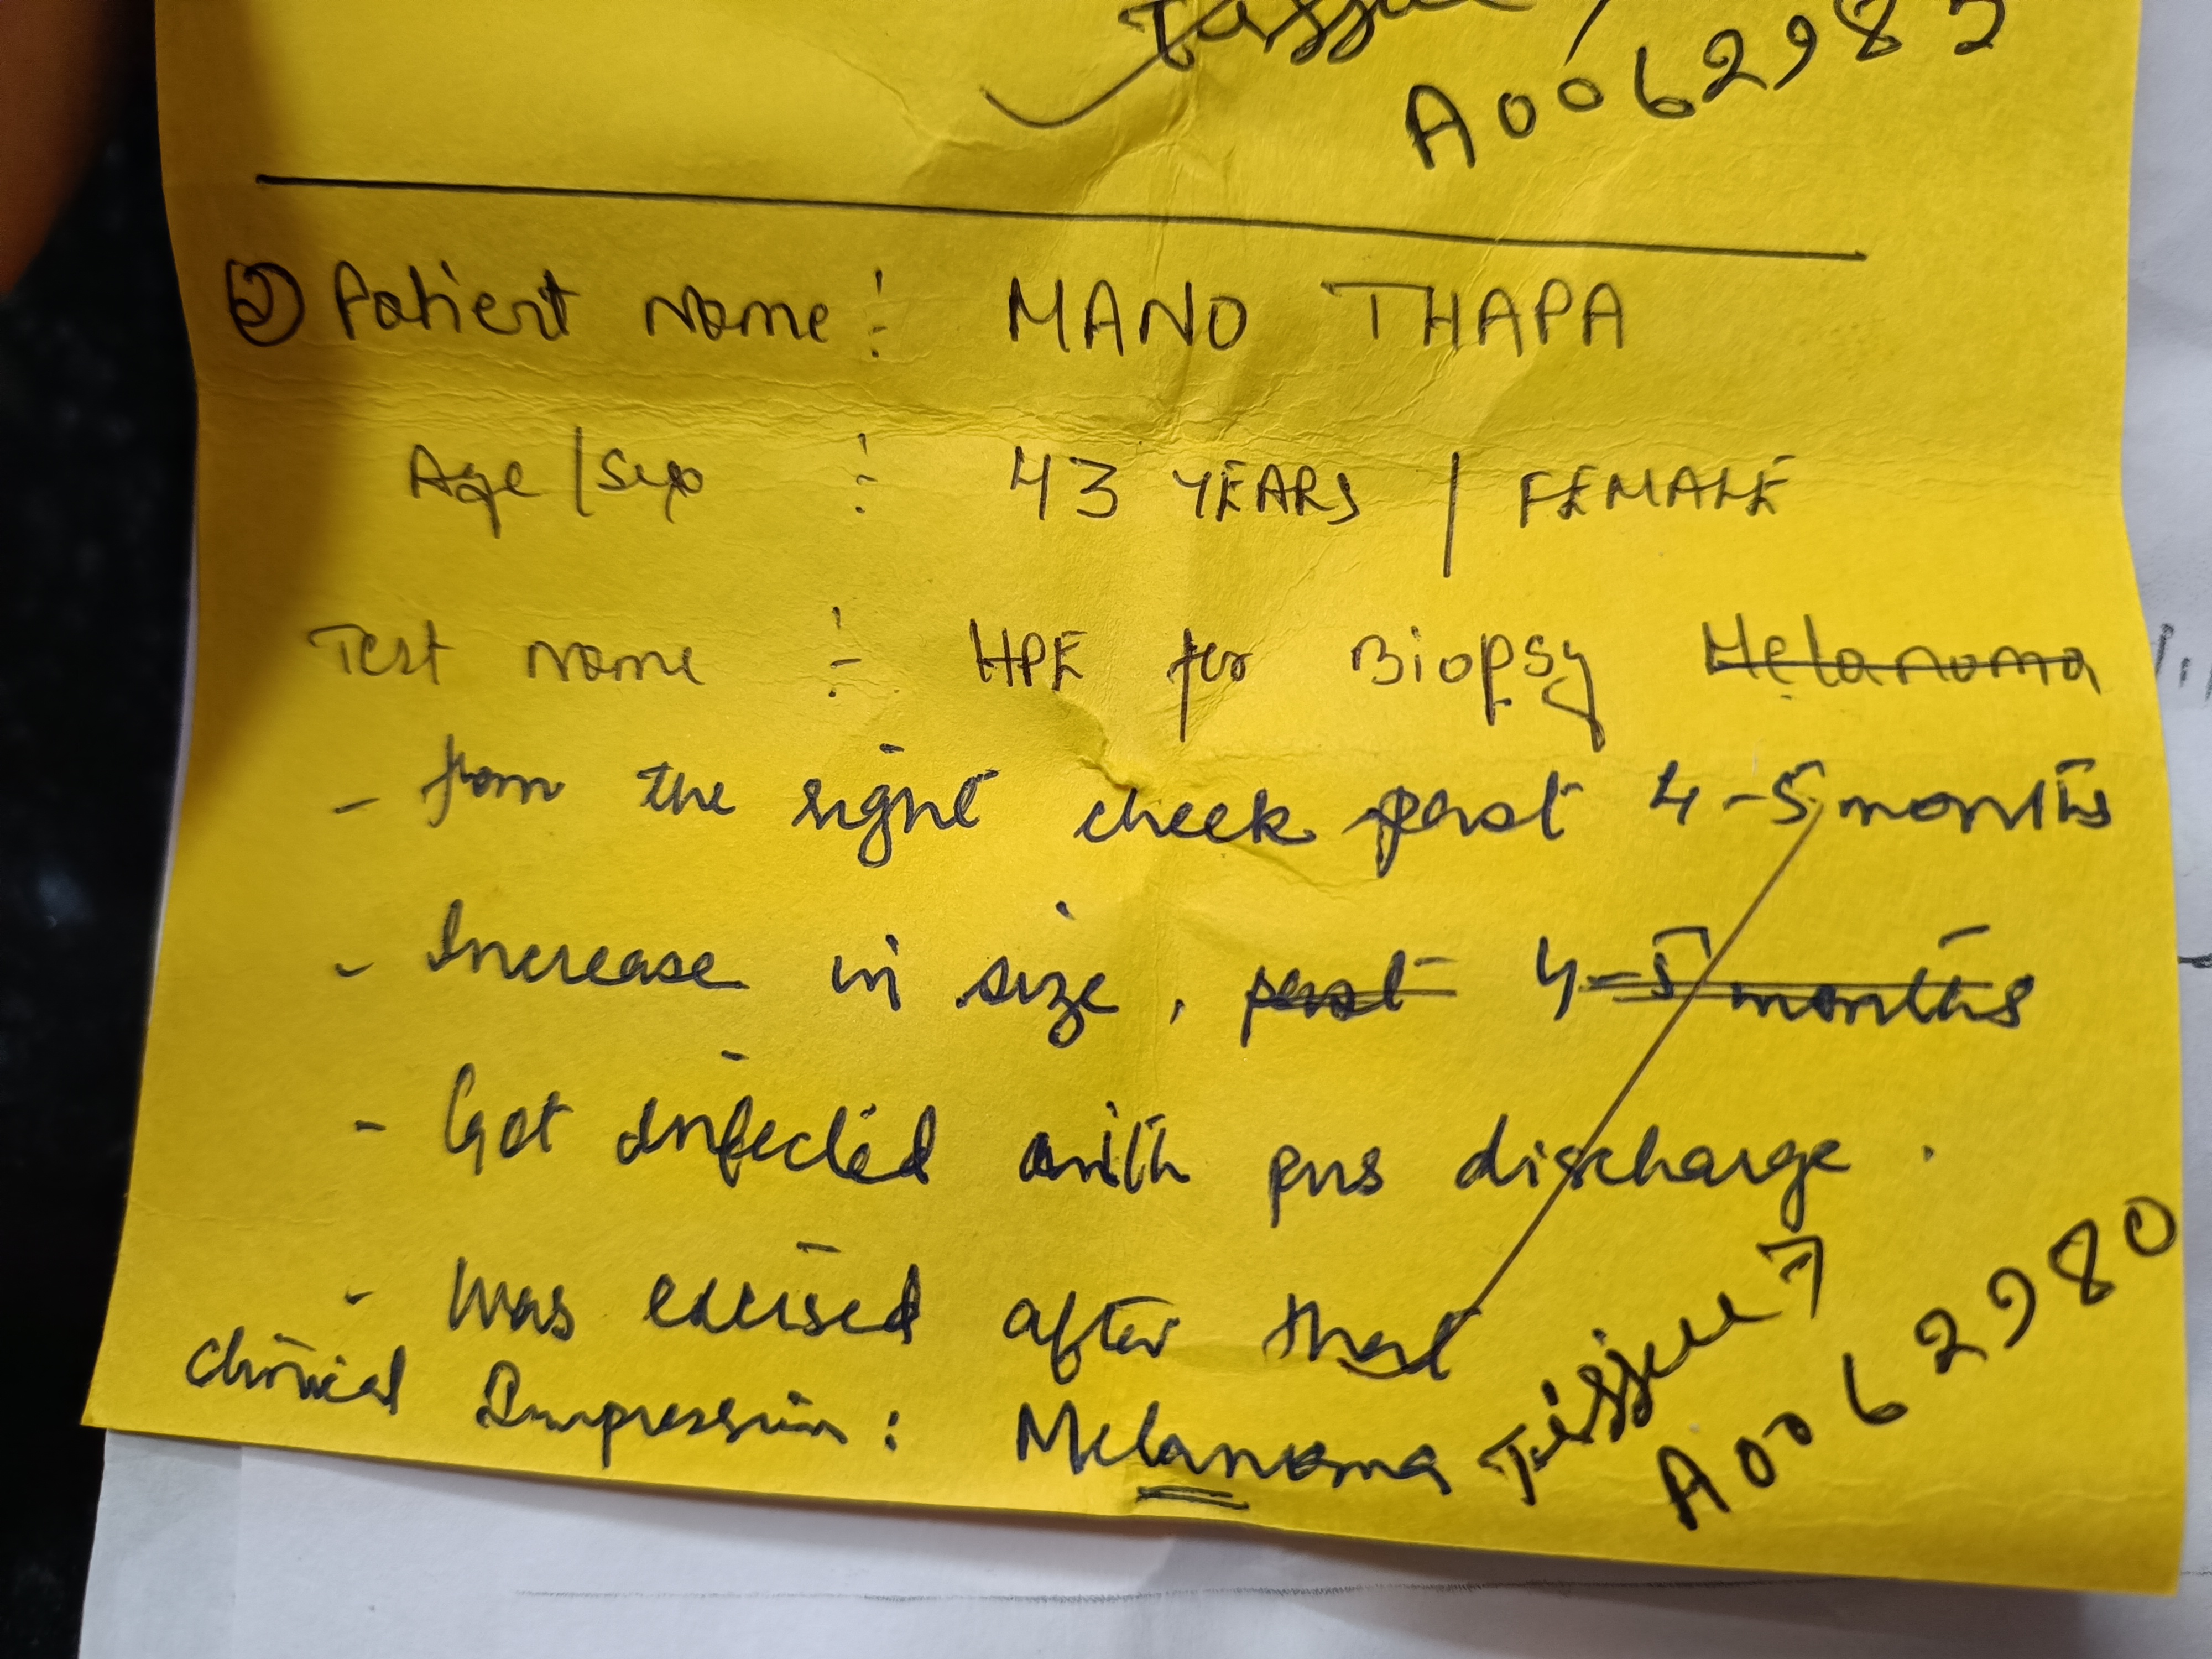 Tissue /
A0062985
② Patient Name : MANO THAPA
Age/Sex : 43 YEARS / FEMALE
Test Name : HPE for Biopsy Melanoma
- from the right cheek past 4-5 months
- Increase in size, past 4-5 months
- Got infected with pus discharge.
- Was excised after that
Clinical Impression : Melanoma
Tissue 7
A0062980